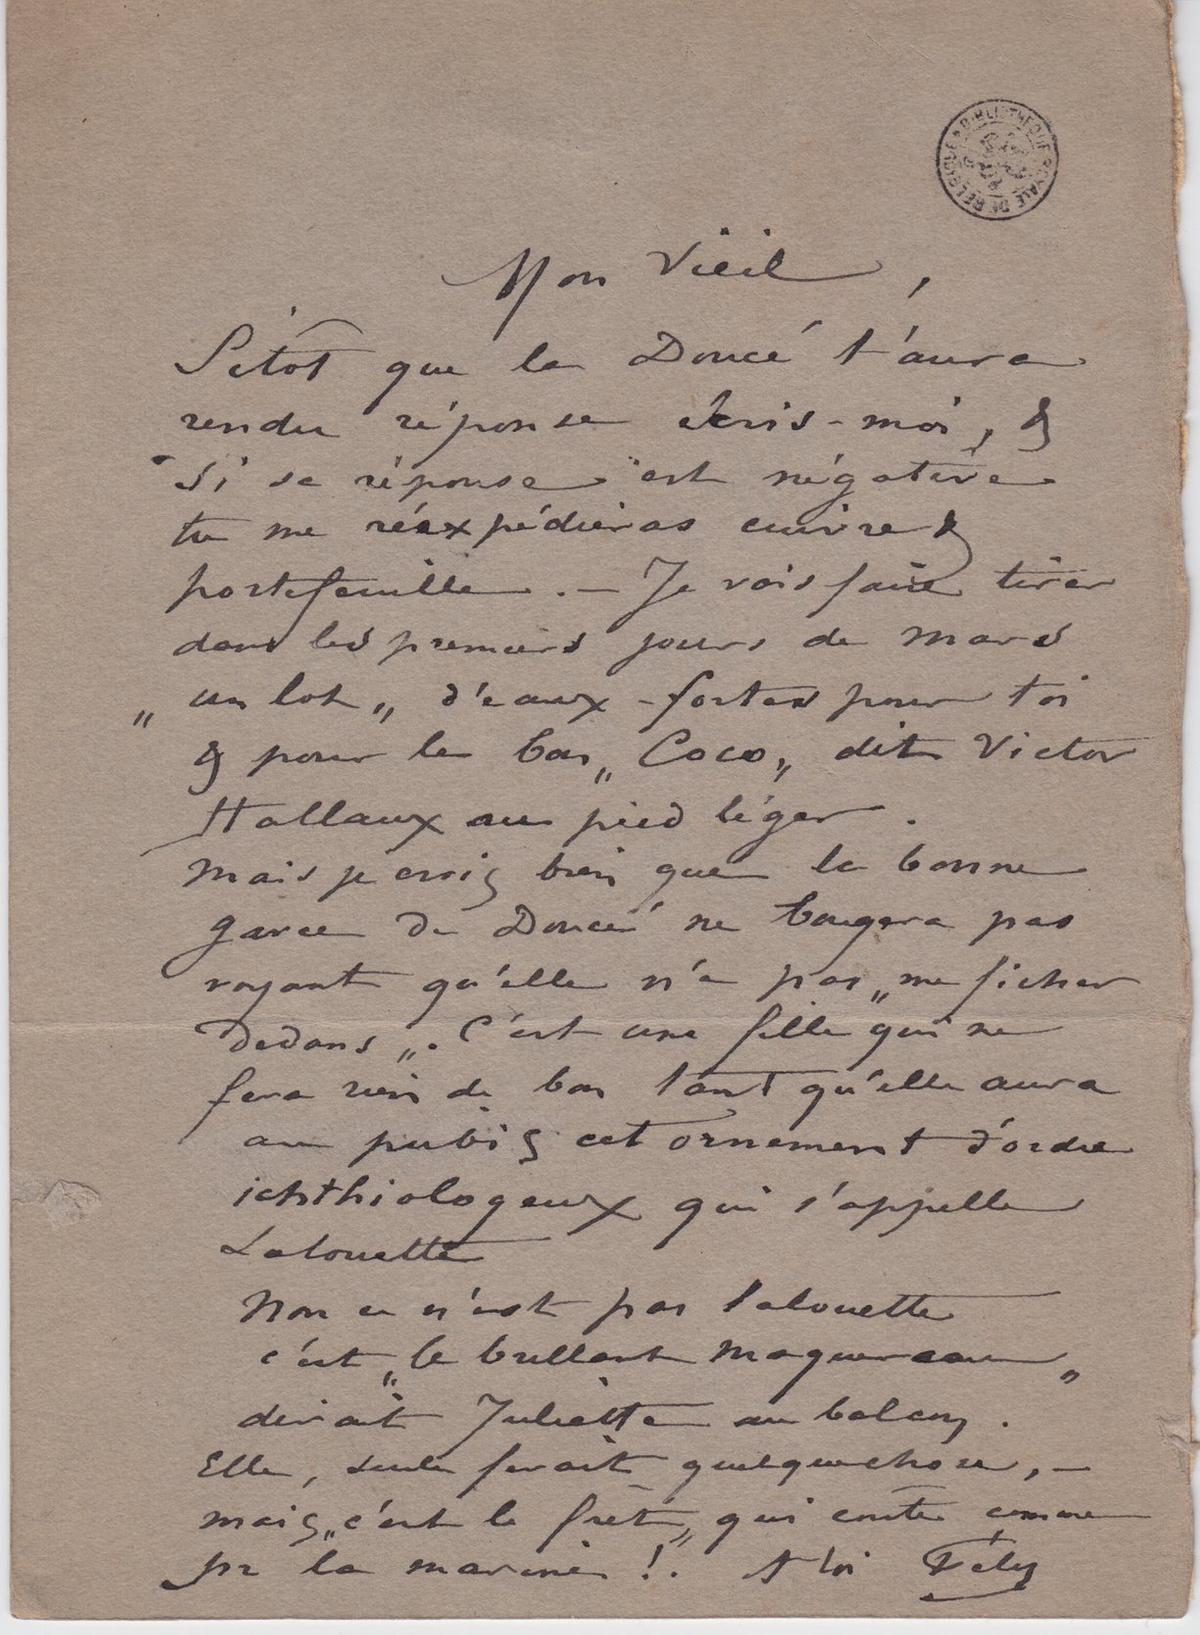 BIBLIOTHEQUE ROYALE DE BELGIQUE
Mon Vieil,
Sitôt que la Doucé t'aura
rendu réponse écris-moi, &
si sa réponse est négative
tu me réexpédieras cuivre &
portefeuille. — Je vais faire tirer
dans les premiers jours de Mars
„ un lot „ d'eaux-fortes pour toi
& pour le bon „ Coco „ dit Victor
Hallaux au pied léger.
Mais je crois bien que la bonne
garce de Doucé ne bougera pas
voyant qu'elle n'a pas „ me ficher
dedans „. C'est une fille qui ne
fera rien de bon tant qu'elle aura
au pubis cet ornement d'ordre
ichthiologeux qui s'appelle
Lalouette
Non ce n'est pas l'alouette
c'est „ le brillant Maquereau „
dirait Juliette au balcon.
Elle, seule ferait quelquechose, —
mais „ c'est le frèt „ qui coute comme
pr la marine !. A toi Fély